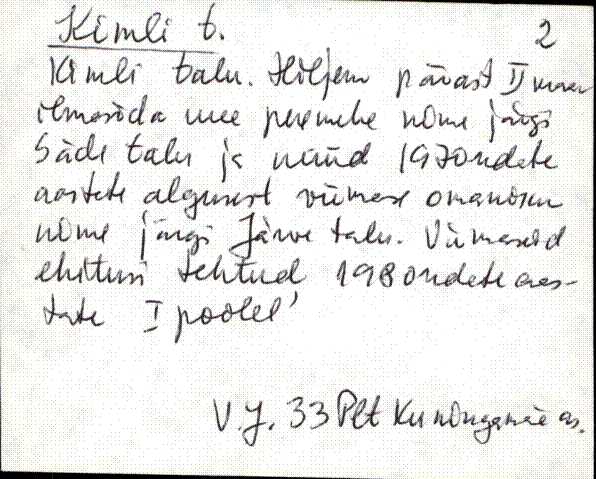 Kimli t.
2
Kimli talu. Hiljem pärast II maa
ilmasõda uue peremehe nime järgi
Säde talu ja nüüd 1970ndate
aastate algusest viimase omaniku
nime järgi Järve talu. Viimased
ehitusi tehtud 1980ndate aas-
tate I poolel
V.J. 33 Plt Kuninga as.